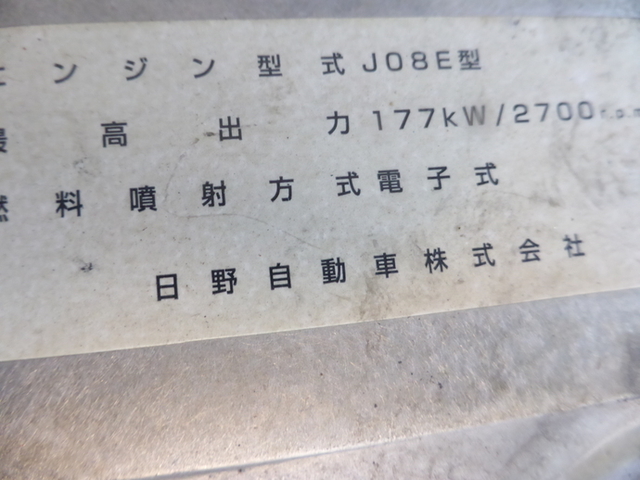 エンジン型式 J08E型
最高出力 177kW/2700r.p.m
燃料噴射方式 電子式
日野自動車株式会社